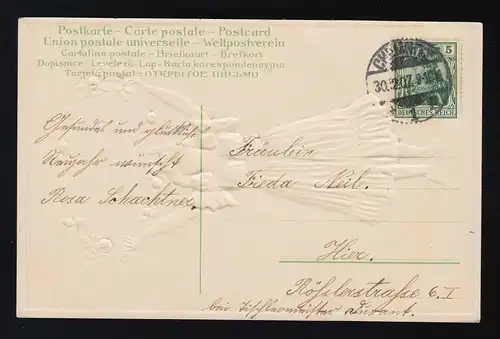 Postkarte – Carte postale – Postcard
Union postale universelle – Weltpostverein
Cartolina postale – Briefkaart – Brefkort
Dopisnice – Levelező-Lap – Karta korespondencyjna
Tarjeta postal – ОТКРЫТОЕ ПИСЬМО
5
DEUTSCHES REICH
30.12.07.
Gesundes und glückliches
Neujahr wünscht
Rosa Schachtner.
Fräulein
Frieda Neil.
Hier.
Rößlerstraße 6. I
bei Tischlermeister Durant.